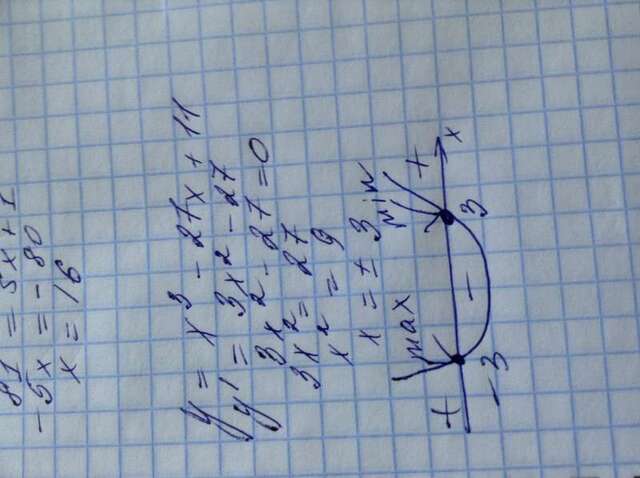 81 = 5x + 1
-5x = -80
x = 16
y = x³ - 27x + 11
y' = 3x² - 27
3x² - 27 = 0
3x² = 27
x² = 9
x = ± 3
max min
+ - + x
-3 3